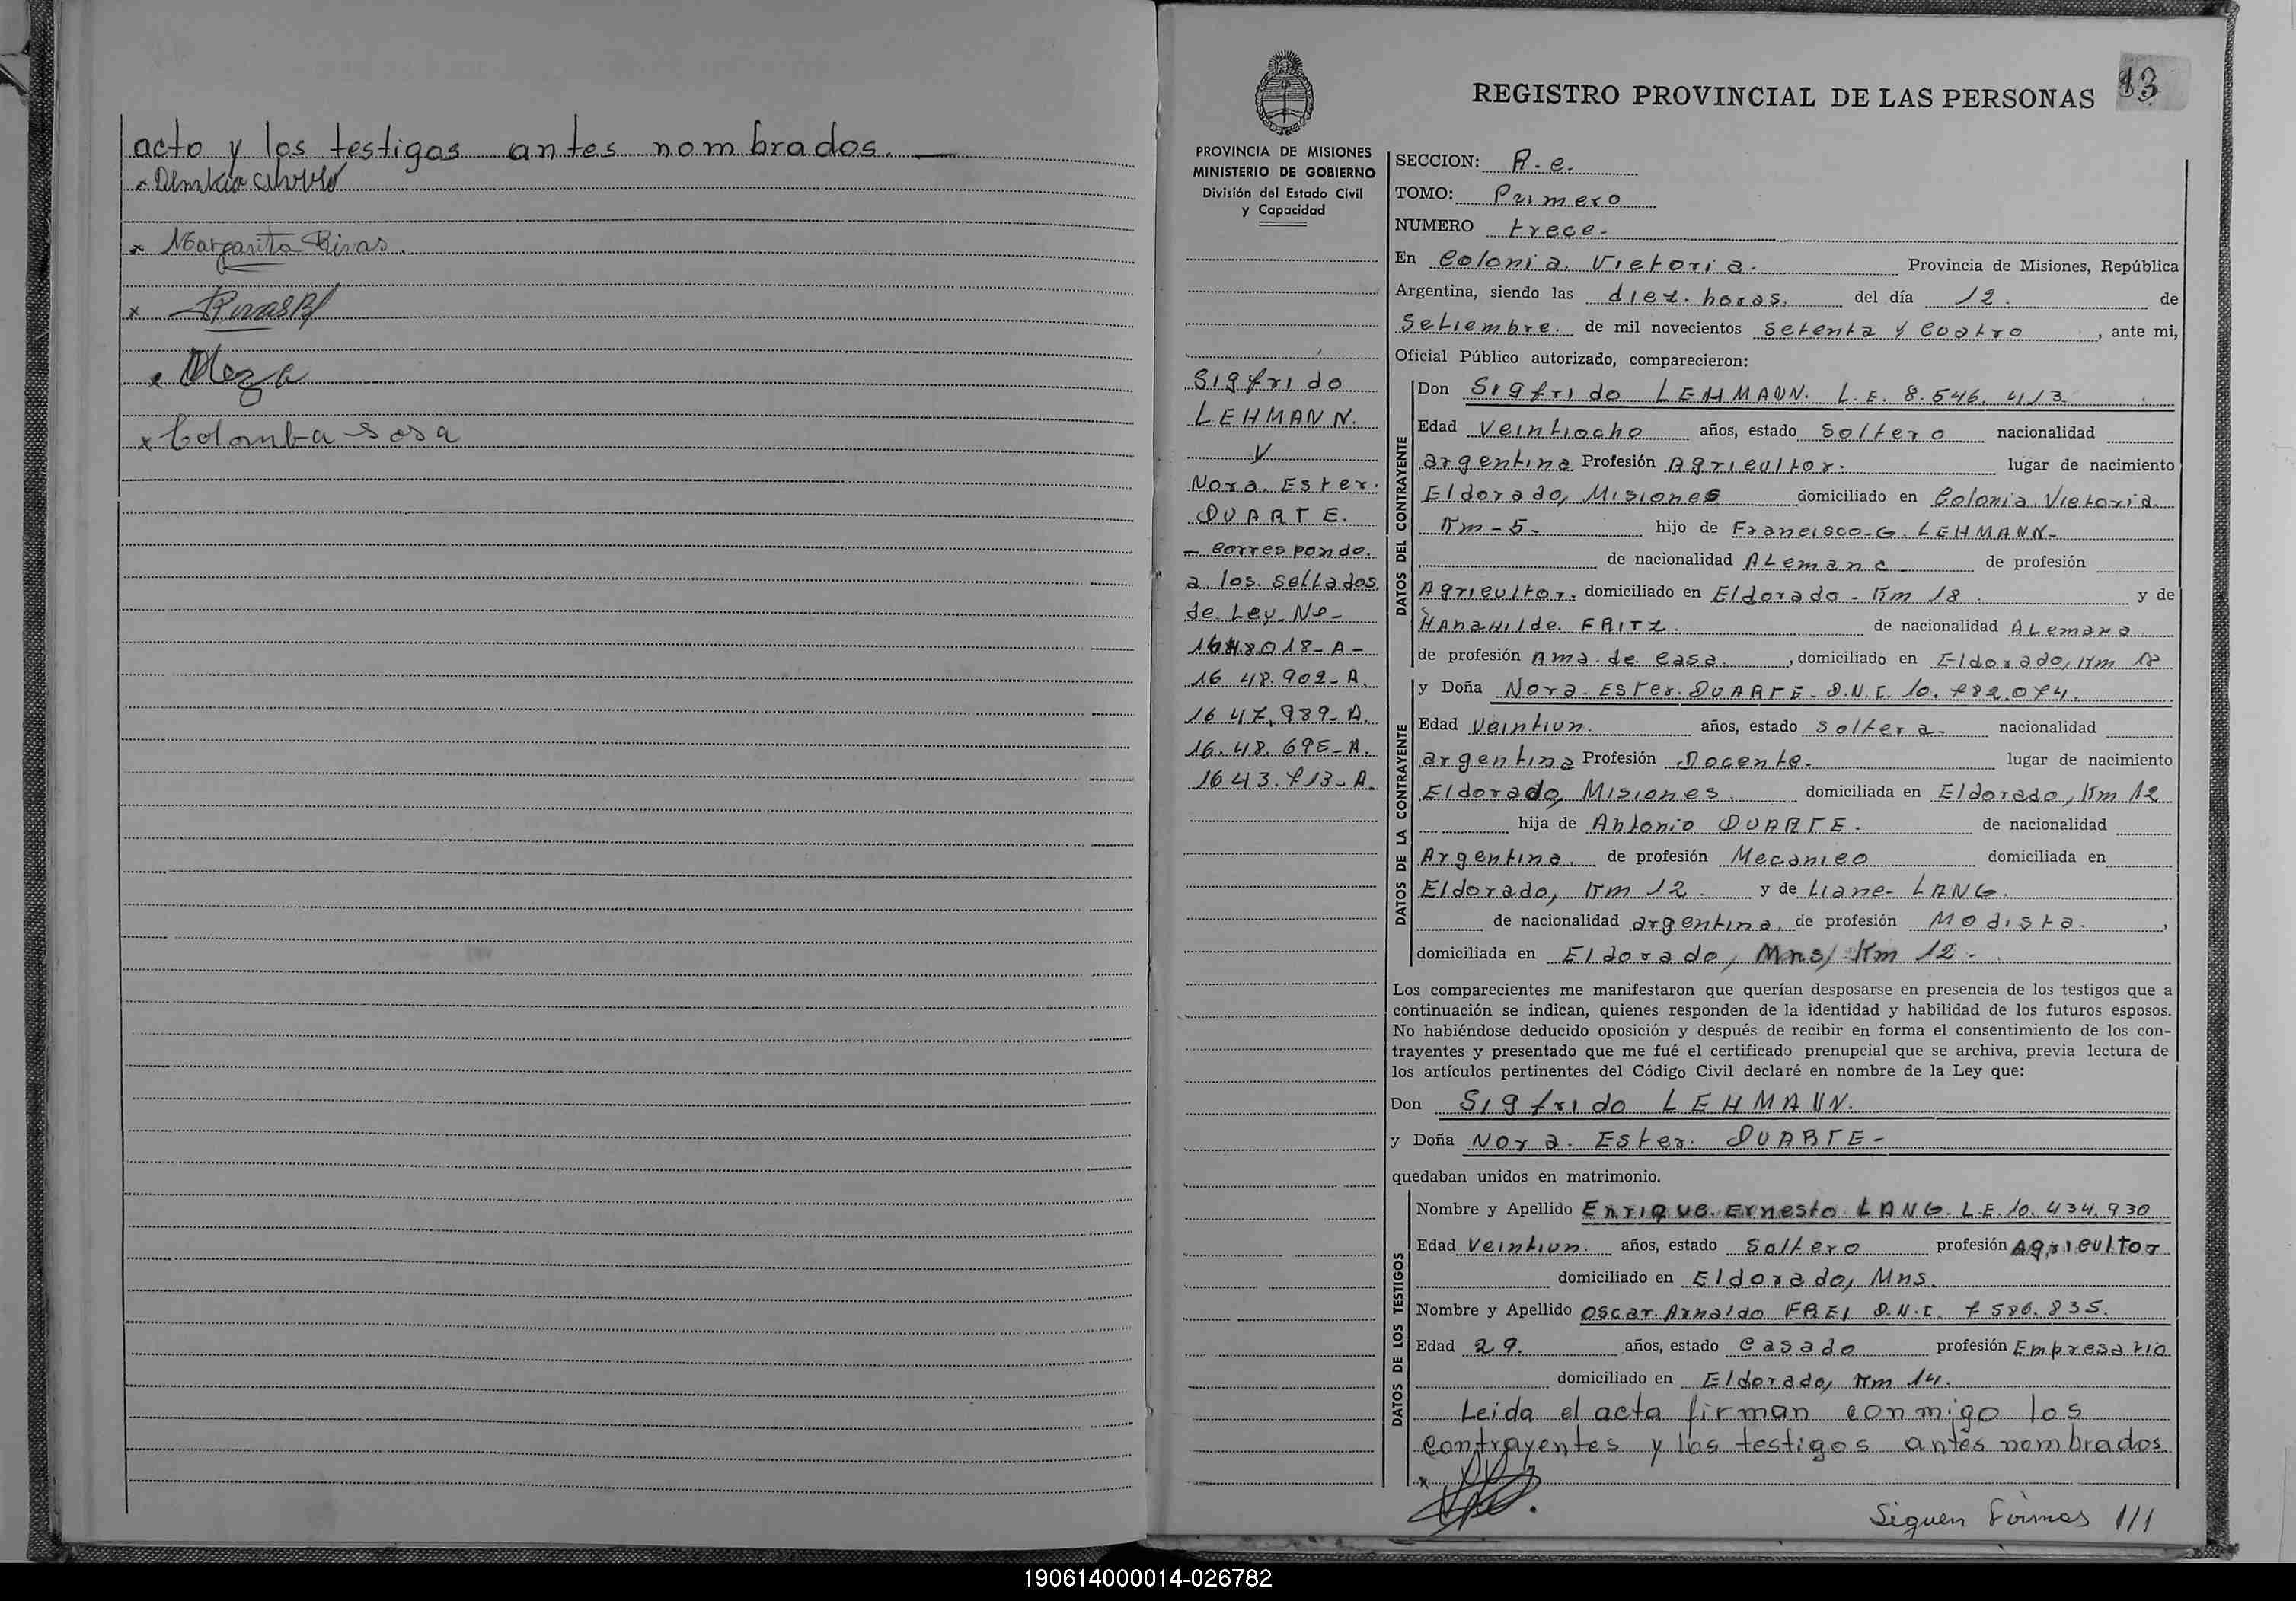 acto y los testigos antes nombrados. —
x Margarita Rivas.
x
x Meza
x Colomba Sosa
13
REGISTRO PROVINCIAL DE LAS PERSONAS
PROVINCIA DE MISIONES
MINISTERIO DE GOBIERNO
División del Estado Civil
y Capacidad
Sigfrido
LEHMANN.
y
Nora. Ester.
DUARTE.
- Corresponde.
a los sellados
de Ley. No-
16 48.902-A.
16 47,989-A.
16.48.695-A.
1643.713-A.
SECCION: R.e.
TOMO: Primero
NUMERO trece.
En Colonia. Victoria. Provincia de Misiones, República
Argentina, siendo las diez. horas. del día 12. de
Setiembre. de mil novecientos setenta y cuatro, ante mi,
Oficial Público autorizado, comparecieron:
DATOS DEL CONTRAYENTE
Don Sigfrido LEHMANN. L.E. 8.546.413.
Edad Veintiocho años, estado Soltero nacionalidad
argentina Profesión Agricultor. lugar de nacimiento
Eldorado, Misiones domiciliado en Colonia Victoria
Km-5- hijo de Francisco-G. LEHMANN-
de nacionalidad ALemana - de profesión
Agricultor. domiciliado en Eldorado - Km 18. y de
HAnaHilde. FRITZ. de nacionalidad ALemana
de profesión Ama. de casa., domiciliado en Eldorado, Km 18
DATOS DE LA CONTRAYENTE
y Doña Nora. Ester. DUARTE- D.N.I. 10.782.074.
Edad Veintiun. años, estado soltera- nacionalidad
argentina Profesión Docente. lugar de nacimiento
Eldorado, Misiones. domiciliada en Eldorado, Km 12
hija de Antonio DUARTE. de nacionalidad
Argentina. de profesión Mecanico domiciliada en
Eldorado, Km 12. y de Liane- LANG.
de nacionalidad argentina de profesión Modista.,
domiciliada en Eldorado, Mns/ Km 12.
Los comparecientes me manifestaron que querían desposarse en presencia de los testigos que a
continuación se indican, quienes responden de la identidad y habilidad de los futuros esposos.
No habiéndose deducido oposición y después de recibir en forma el consentimiento de los con-
trayentes y presentado que me fué el certificado prenupcial que se archiva, previa lectura de
los artículos pertinentes del Código Civil declaré en nombre de la Ley que:
Don Sigfrido LEHMANN.
y Doña Nora. Ester. DUARTE-
quedaban unidos en matrimonio.
DATOS DE LOS TESTIGOS
Nombre y Apellido Enrique. Ernesto LANG. L.E. 10.434.930
Edad Veintiun. años, estado Soltero profesión Agricultor
domiciliado en Eldorado, Mns.
Nombre y Apellido Oscar. Arnaldo FREI D.N.I. 7586.835.
Edad 29. años, estado Casado profesión Empresario
domiciliado en Eldorado, Km 14.
Leida el acta firman conmigo los
contrayentes y los testigos antes nombrados.
x
Siguen firmas ///
190614000014-026782